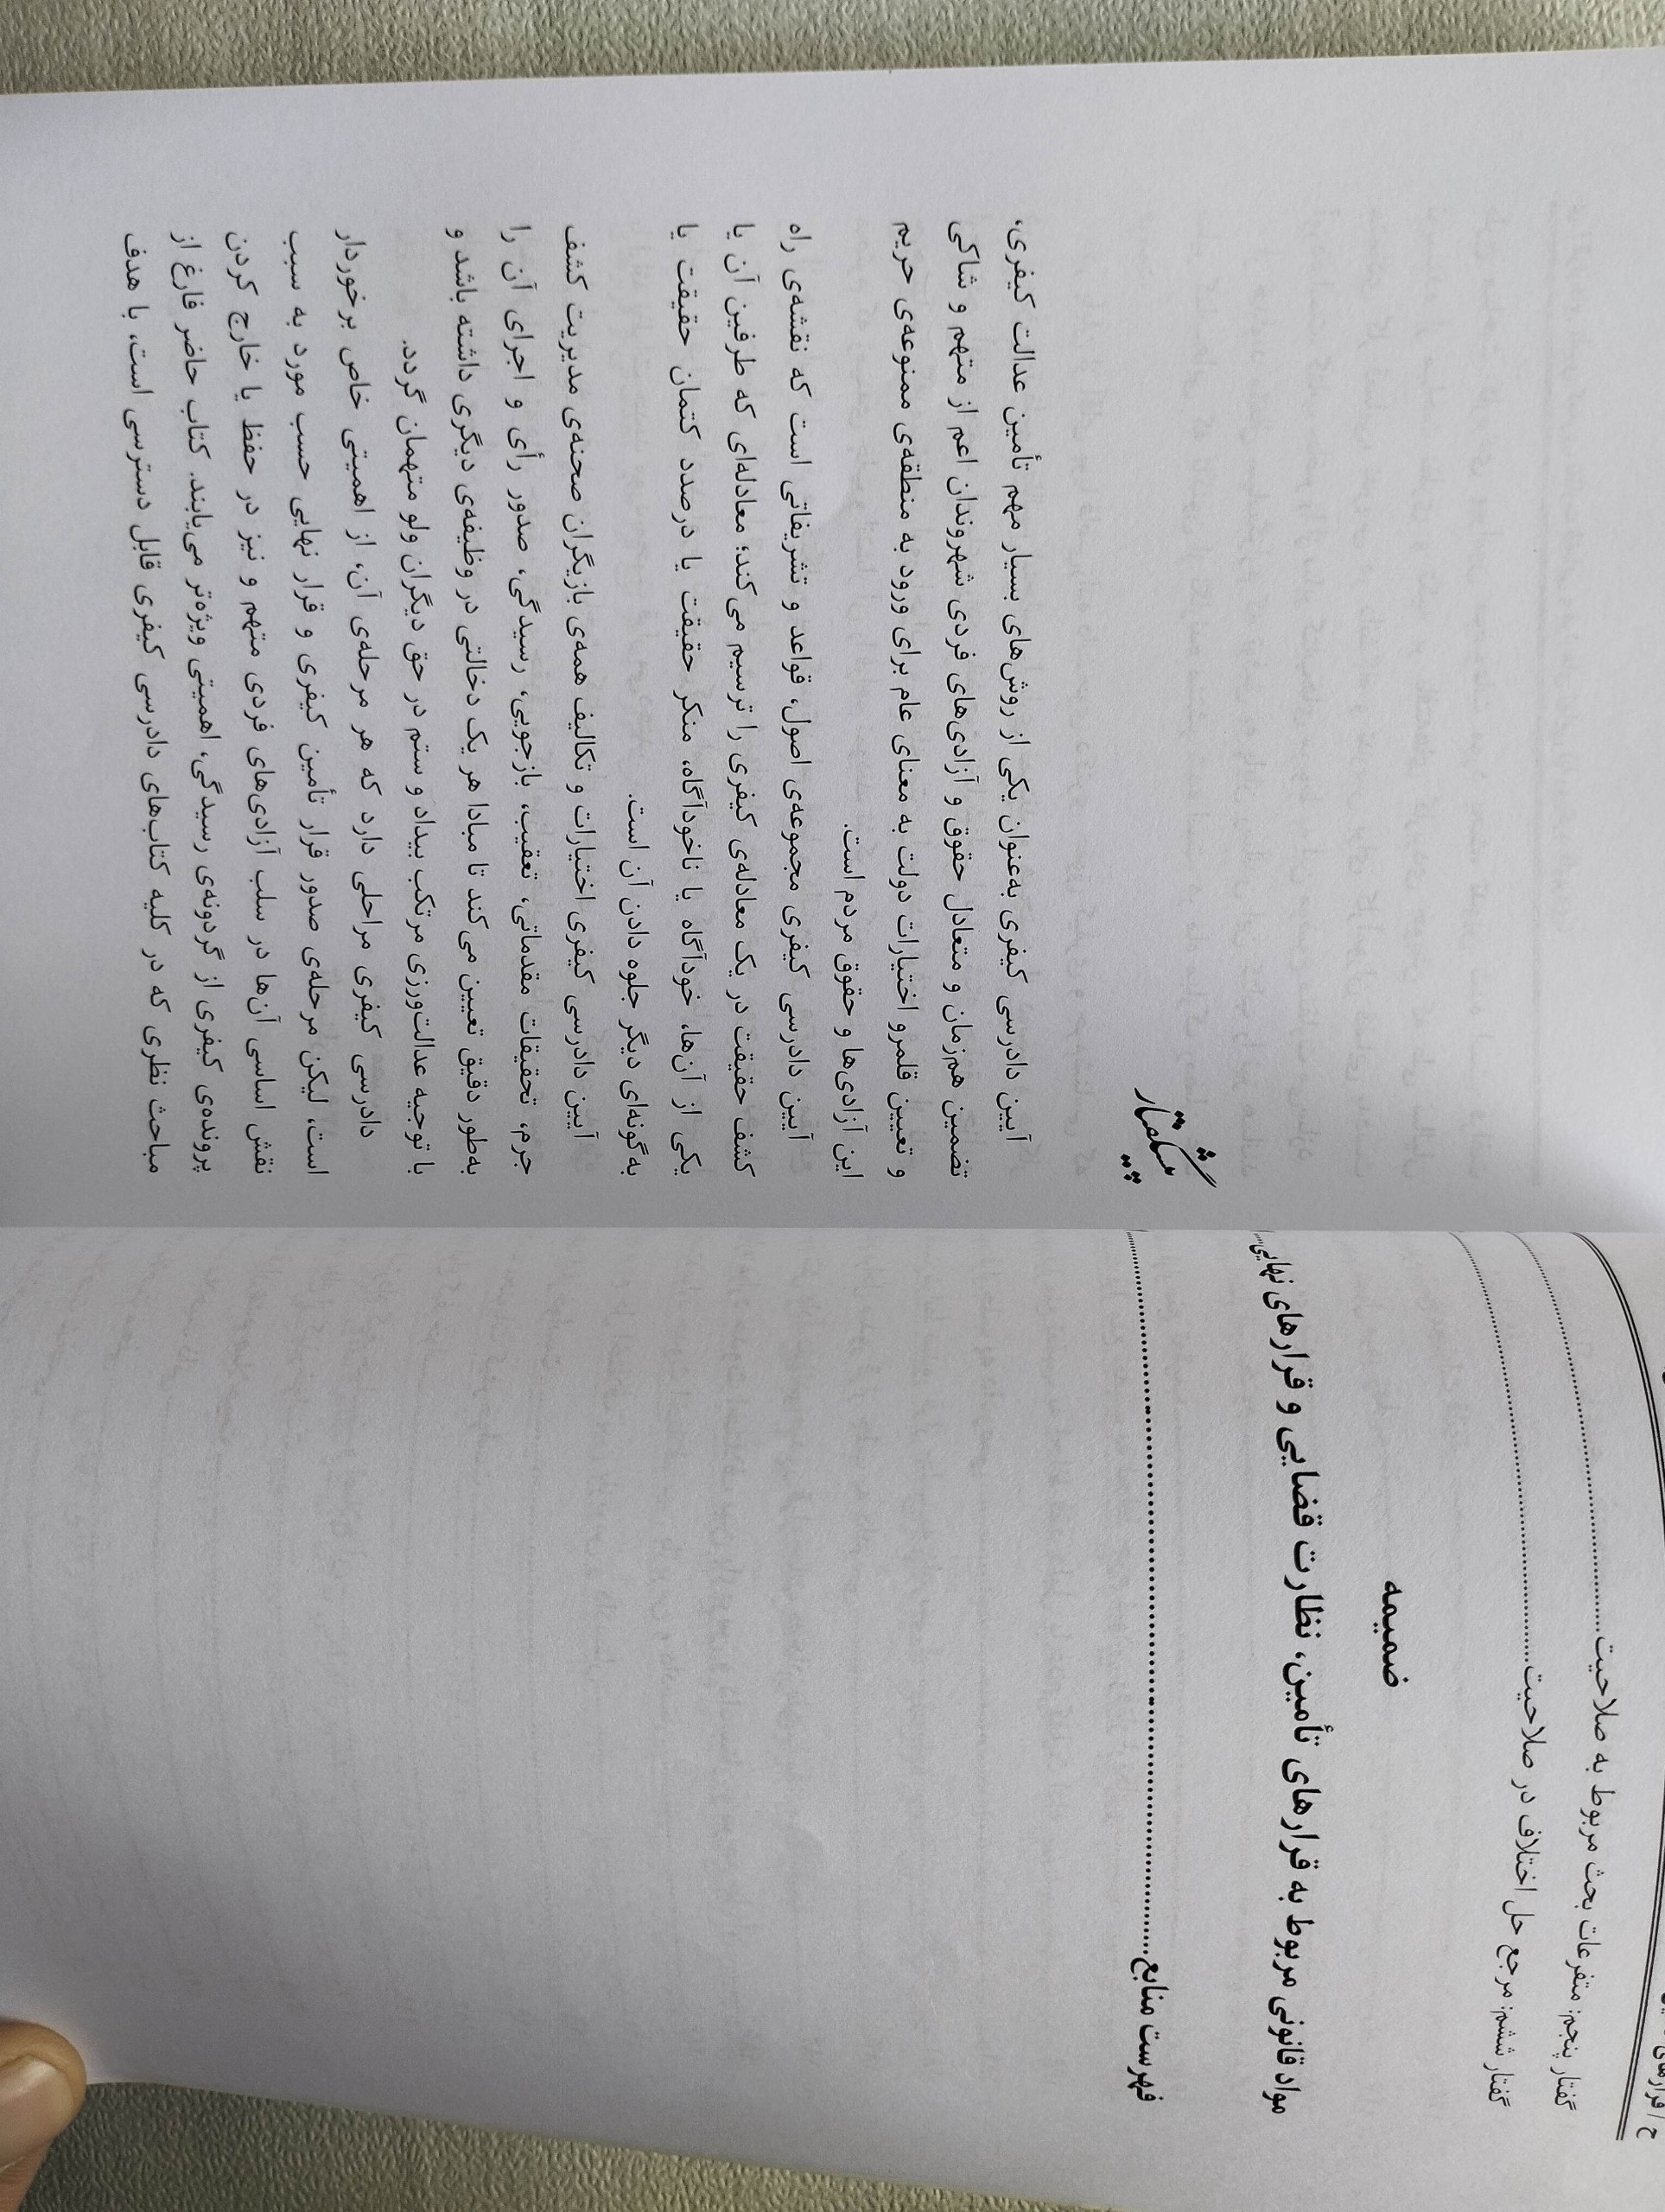 گفتار پنجم: متفرعات بحث مربوط به صلاحیت
گفتار ششم: مرجع حل اختلاف در صلاحیت
ضمیمه
مواد قانونی مربوط به قرارهای تأمین، نظارت قضایی و قرارهای نهایی
فهرست منابع
پیشگفتار
آیین دادرسی کیفری به‌عنوان یکی از روش‌های بسیار مهم تأمین عدالت کیفری،
تضمین هم‌زمان و متعادل حقوق و آزادی‌های فردی شهروندان اعم از متهم و شاکی
و تعیین قلمرو اختیارات دولت به معنای عام برای ورود به منطقه‌ی ممنوعه‌ی حریم
این آزادی‌ها و حقوق مردم است.
آیین دادرسی کیفری مجموعه‌ی اصول، قواعد و تشریفاتی است که نقشه‌ی راه
کشف حقیقت در یک معادله‌ی کیفری را ترسیم می‌کند؛ معادله‌ای که طرفین آن یا
یکی از آن‌ها، خودآگاه یا ناخودآگاه، منکر حقیقت یا درصدد کتمان حقیقت یا
به‌گونه‌ای دیگر جلوه دادن آن است.
آیین دادرسی کیفری اختیارات و تکالیف همه‌ی بازیگران صحنه‌ی مدیریت کشف
جرم، تحقیقات مقدماتی، تعقیب، بازجویی، رسیدگی، صدور رأی و اجرای آن را
به‌طور دقیق تعیین می‌کند تا مبادا هر یک دخالتی در وظیفه‌ی دیگری داشته باشد و
با توجیه عدالت‌ورزی مرتکب بیداد و ستم در حق دیگران ولو متهمان گردد.
دادرسی کیفری مراحلی دارد که هر مرحله‌ی آن، از اهمیتی خاص برخوردار
است، لیکن مرحله‌ی صدور قرار تأمین کیفری و قرار نهایی حسب مورد به سبب
نقش اساسی آن‌ها در سلب آزادی‌های فردی متهم و نیز در حفظ یا خارج کردن
پرونده‌ی کیفری از گردونه‌ی رسیدگی، اهمیتی ویژه‌تر می‌یابند. کتاب حاضر فارغ از
مباحث نظری که در کلیه کتاب‌های دادرسی کیفری قابل دسترسی است، با هدف